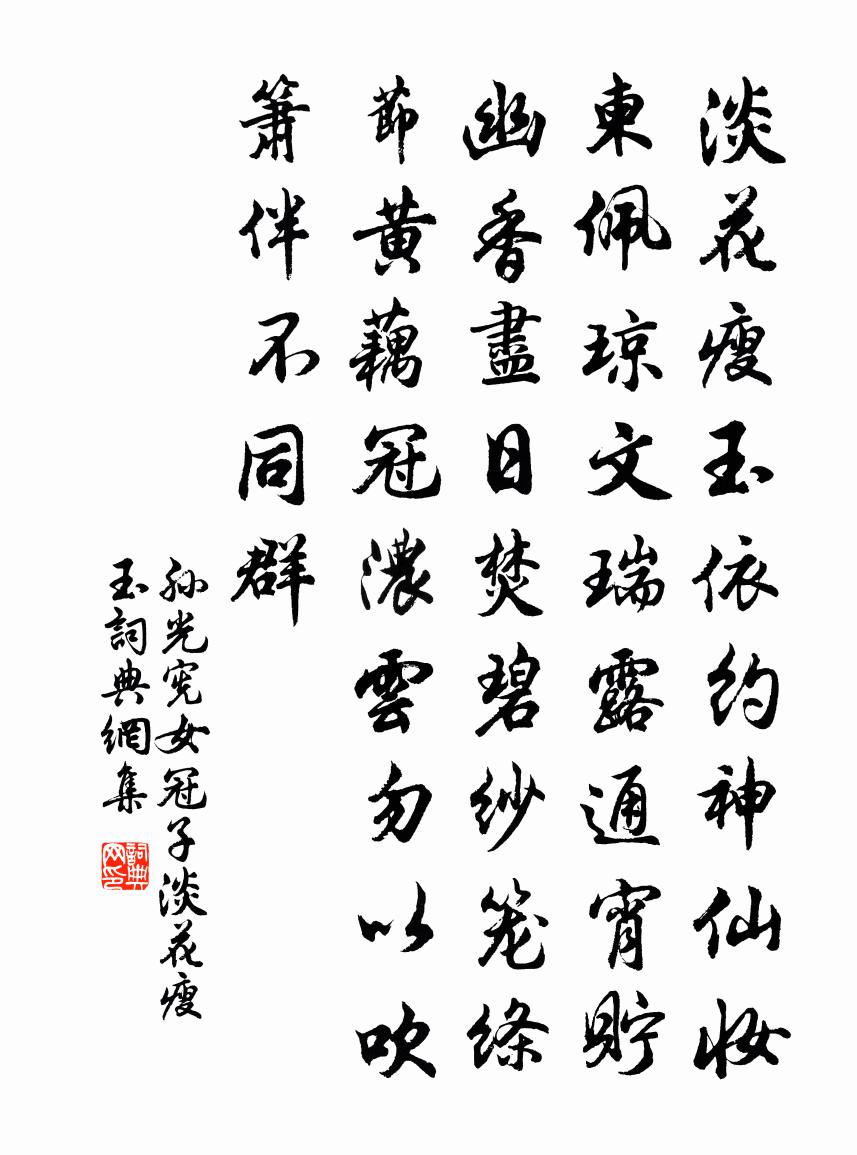 淡花瘦玉依約神仙妆
東佩琼文瑞露通宵貯
幽香盡日焚碧纱笼绦
節黄藕冠濃雲勿以吹
箫伴不同群
孙光宪女冠子淡花瘦
玉詞典網集
詞典网印